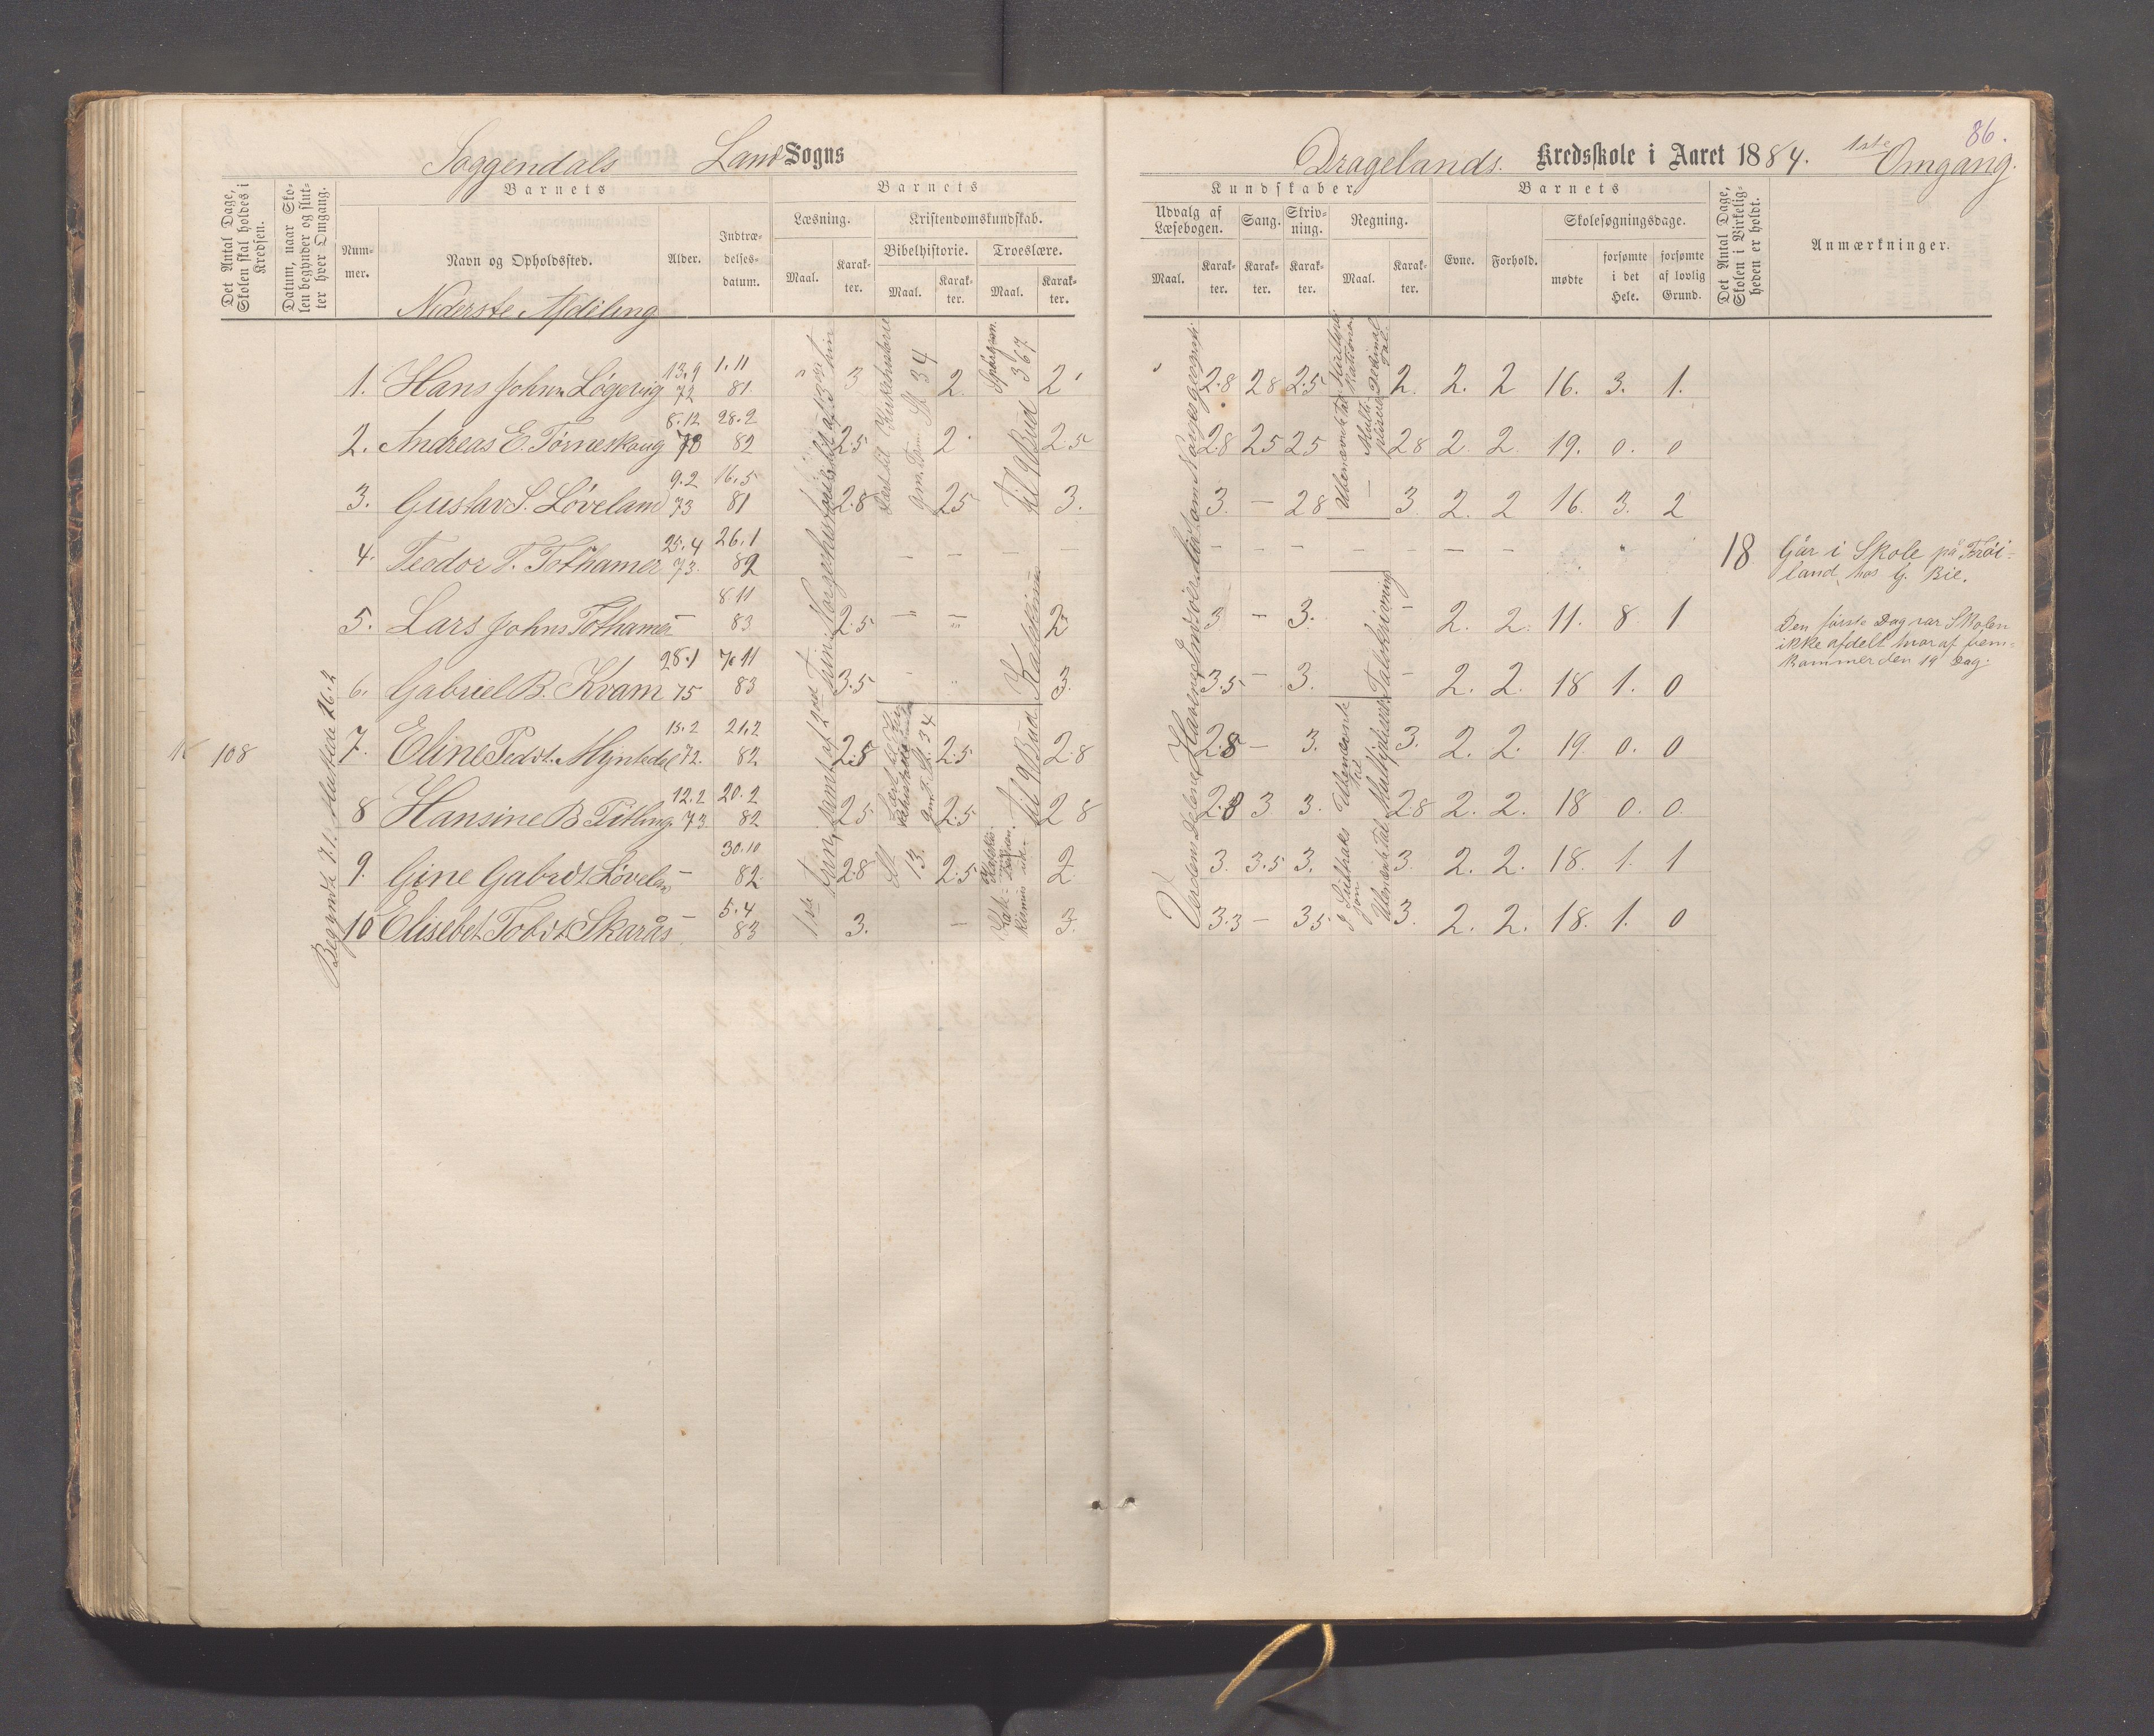 86.
Soggendals Land Sogns
Dragelands. Kredsskole i Aaret 1884. 1ste Omgang.
Det Antal Dage, Skolen skal holdes i Kredsen.
Datum, naar Skolen begynder og slutter hver Omgang.
Barnets
Nummer.
Navn og Opholdssted.
Alder.
Indtrædelsesdatum.
Barnets
Læsning.
Maal.
Karakter.
Kristendomskundskab.
Bibelhistorie.
Maal.
Karakter.
Troeslære.
Maal.
Karakter.
Kundskaber.
Udvalg af Læsebogen.
Maal.
Karakter.
Sang.
Karakter.
Skrivning.
Karakter.
Regning.
Maal.
Karakter.
Barnets
Evne.
Forhold.
Skolesøgningsdage.
mødte
forsømte i det Hele.
forsømte af lovlig Grund.
Det Antal Dage, Skolen i Virkeligheden er holdt.
Anmærkninger.
Nederste Afdeling
108
Begyndt 7.1. sluttede 26.2
1. Hans Johnn Løgevig 13.9 72 1.11 81 3 2 2 2.8 2.8 2.5 2. 2. 2 16. 3. 1.
2. Andreas E. Tørneskaug 8.12 70 28.2 82 2.5 2 2.5 2.8 2.5 2.5 2.8 2. 2. 19. 0. 0
3. Gustav S. Løveland 9.2 73 16.5 81 2.8 2.5 3. 3. — 2.8 3. 2. 2 16. 3. 2
4. Teodor T. Tothamer 25.4 73. 26.1 82 — — — — — — — — — — 18 Går i Skole på Frøiland, hos G. Bie.
5. Lars Johns Tothamer — 8.11 83 2.5 — — 2 3 — 3. — 2. 2. 11. 8 1
Den første Dag var Skolen
ikke afdelt hvoraf fremkommer den 19 Dag.
6. Gabriel B. Kvam 28.1 75 7.11 83 3.5 3. 3.5 — 3. — 2. 2. 18 1. 0
7. Eline Pedt. Myntedal 15.2 72. 21.2 82 2.8 2.5 2.8 2.8 — 3. 3. 2. 2. 19. 0. 0
8 Hansine B Titling 12.2 73 20.2 82 2.5 2.5 2.8 2.8 3 3. 2.8 2. 2. 18 0. 0.
9. Gine Gabrdt. Løveland — 30.10 82. 2.8 2.5 2 3. 3.5 3. 3. 2. 2. 18. 1. 1
10 Elisebet Tobdt. Skarås — 5.4 83 3. — 3. 3.3 — 3.5 3. 2. 2. 18. 1. 0
St. 34
367
til 9 Bud
St. 34
til 9 Bud
St 13.